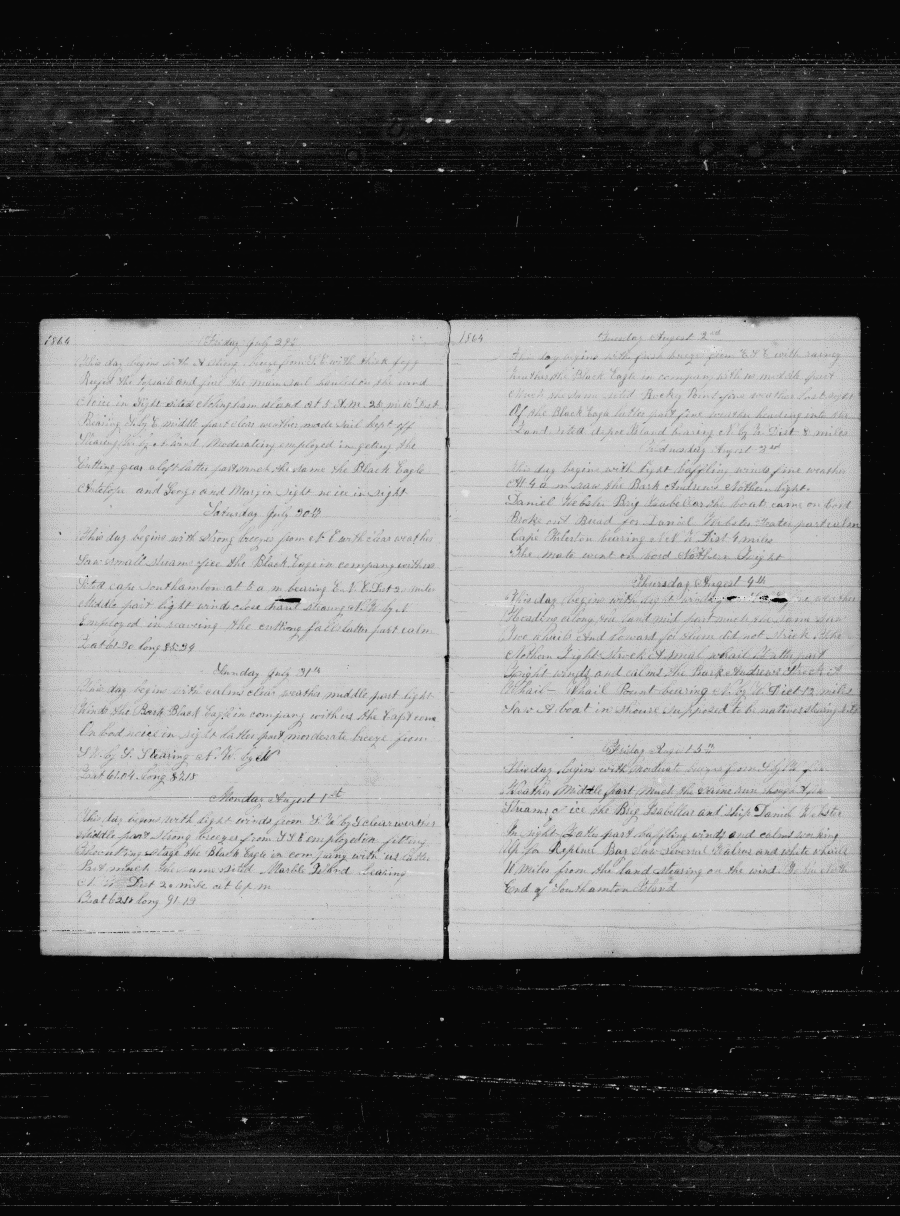 1864
Friday July 29th
This day begins with A Strong from S. E with thick fogg
Reefed the topsails and the main sail hauled on the wind
Noice in Sight Sited Notingham island at 5 A.M. 20 mile Dist
Bearing middle part clear weather made Sail kept off
Stearing W by wind Moderating employed in geting the
Cutting gear aloft latter part much the Same the Black Eagle
Antelope and George and Mary in Sight no ice in sight
Saturday July 30th
This day begins with strong breezes from N E with clear weather
Saw small Streams of ice the Black Eagle in company with us
Sited cape Southamton at 3 a m bearing E. N. E. Dist 20 miles
Middle part light wind close hauled stearing N. W. by N
Employed in reaving the cutting falls latter part calm
Lat 61.30 long 85.34
Sunday July 31th
This day begins with calms clear weather middle part light
Winds the Bark Black Eagle in company with us the Capt came
On bord no ice in sight latter part morderate breeze from
S W. by S. Stearing N. W. by W
Lat 61.04 Long 87.18
Monday August 1st
This day begins with light winds from S. W by S clear weather
Middle part Strong breezes from S S E employed in fitting
the cutting Stage the Black Eagle in company with us latter
Part much the same Sited Marble Island bearing
N. W Dist 20 mile at 6 p. m
Lat 62.10 long 91.13
1864
Tuesday August 2nd
This day begins with fresh breezes from E S E with rainey
weather the Black Eagle in company with us middle part
much the same sited Rocky Point fine weather lost sight
Of the Black Eagle latter part fine weather hauling into the
Land Sited depot Island bearing N. by W Dist 8 miles
Wednesday August 3rd
This day begins with light baffling winds fine weather
At 4 a m saw the Bark Andrews Nothern Light
Daniel Webster Brig Isabellar the boat came on bord
Broke out Bread for Daniel Webster latter part calm
Cape Fulerton bearing Dist 4 miles
The mate went on bord Northern Light
Thursday August 4th
This day begins with light winds fine weather
Heading along the land mid part much the same saw
two whails And lowered for them did not Strick the
Nothern Light struck A small whail latter part
Light winds and calms the Bark Andrews Struck A
Whail — Whail Point bearing N. by W. Dist 12 miles
Saw A boat in Shoure Supposed to be natives
Friday August 5th
This day begins with modrate breezes from S by W fine
Weather Middle part much the same run through few
Streams of ice the Brig Isabellar and Ship Daniel Webster
In sight latter part baffling winds and calms working
up for Repluse Bay Saw several Walrus and white whails
10 miles from the land stearing on the wind North
End of Southamton Island